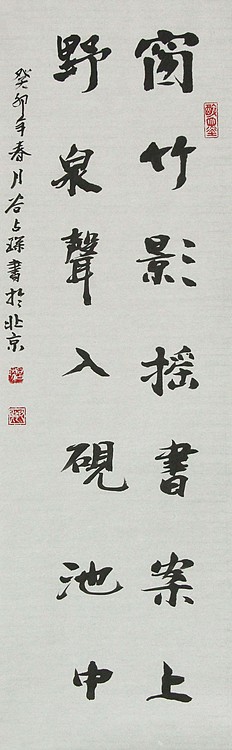 窗竹影摇書案上
野泉聲入硯池中
癸卯年春月谷占琛書於北京